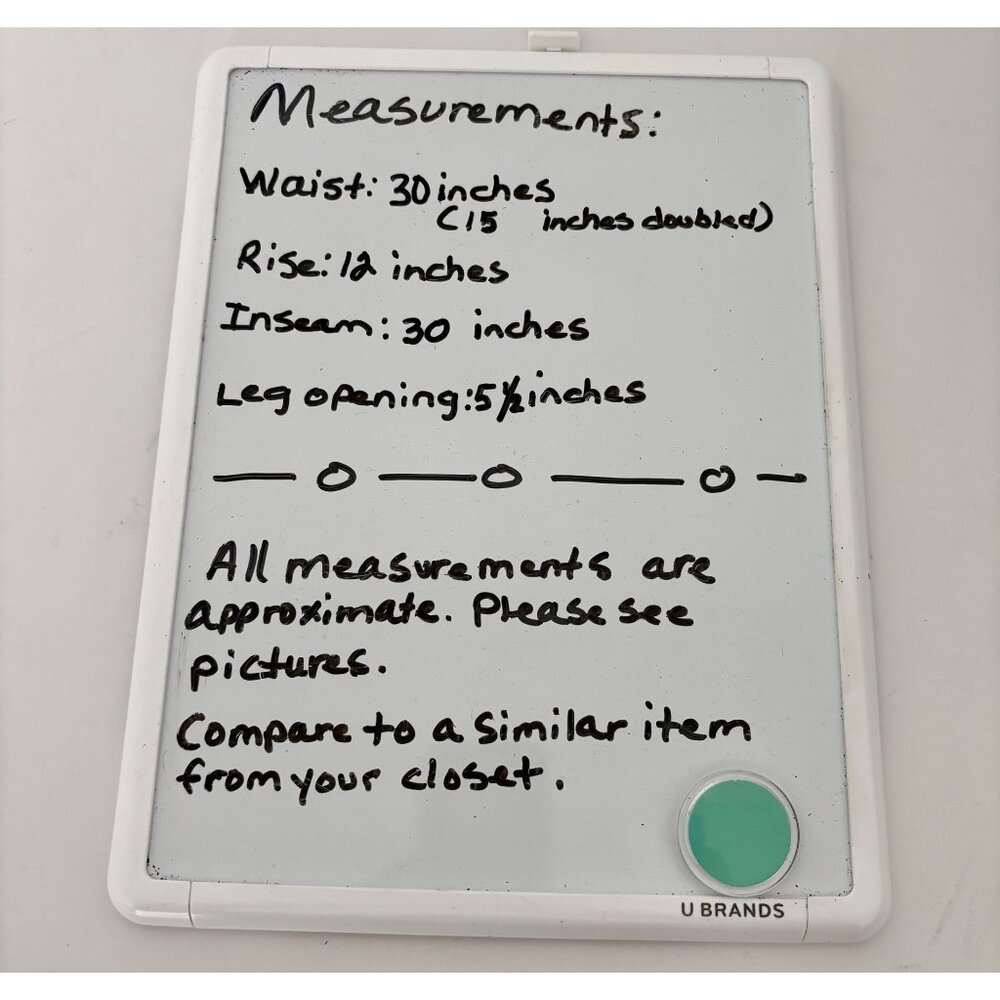 Measurements:
Waist: 30 inches
(15 inches doubled)
Rise: 12 inches
Inseam: 30 inches
Leg opening: 5 1/2 inches
All measurements are
approximate. Please see
pictures.
Compare to a similar item
from your closet.
U BRANDS